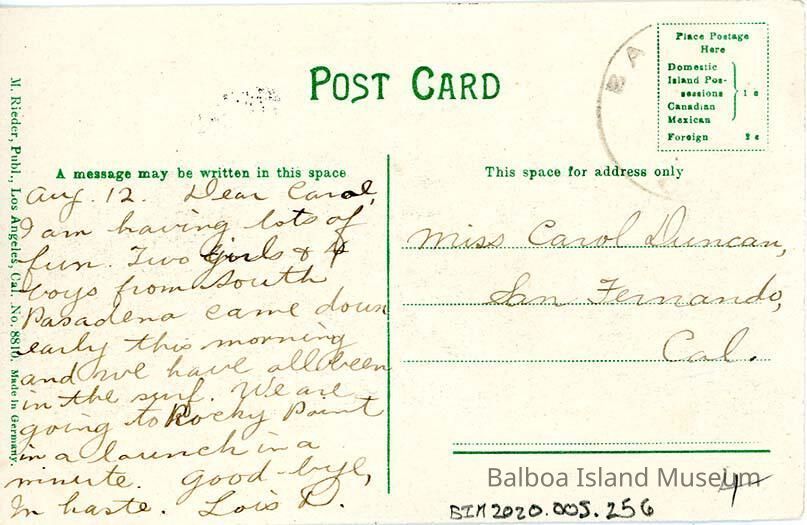 POST CARD
Place Postage
Here
Domestic
Island Pos-
sessions
Canadian
Mexican
1 c
Foreign 2 c
BA
A message may be written in this space
This space for address only
M. Rieder, Publ., Los Angeles, Cal. No. 8810. Made in Germany.
Aug. 12. Dear Carol,
I am having lots of
fun. Two girls & 4
boys from South
Pasadena came down
early this morning
and we have all been
in the surf. We are
going to Rocky Point
in a launch in a
minute. Good-bye,
In haste. Lois D.
Miss Carol Duncan,
San Fernando,
Cal.
Balboa Island Museum
4
BIM2020.005.256